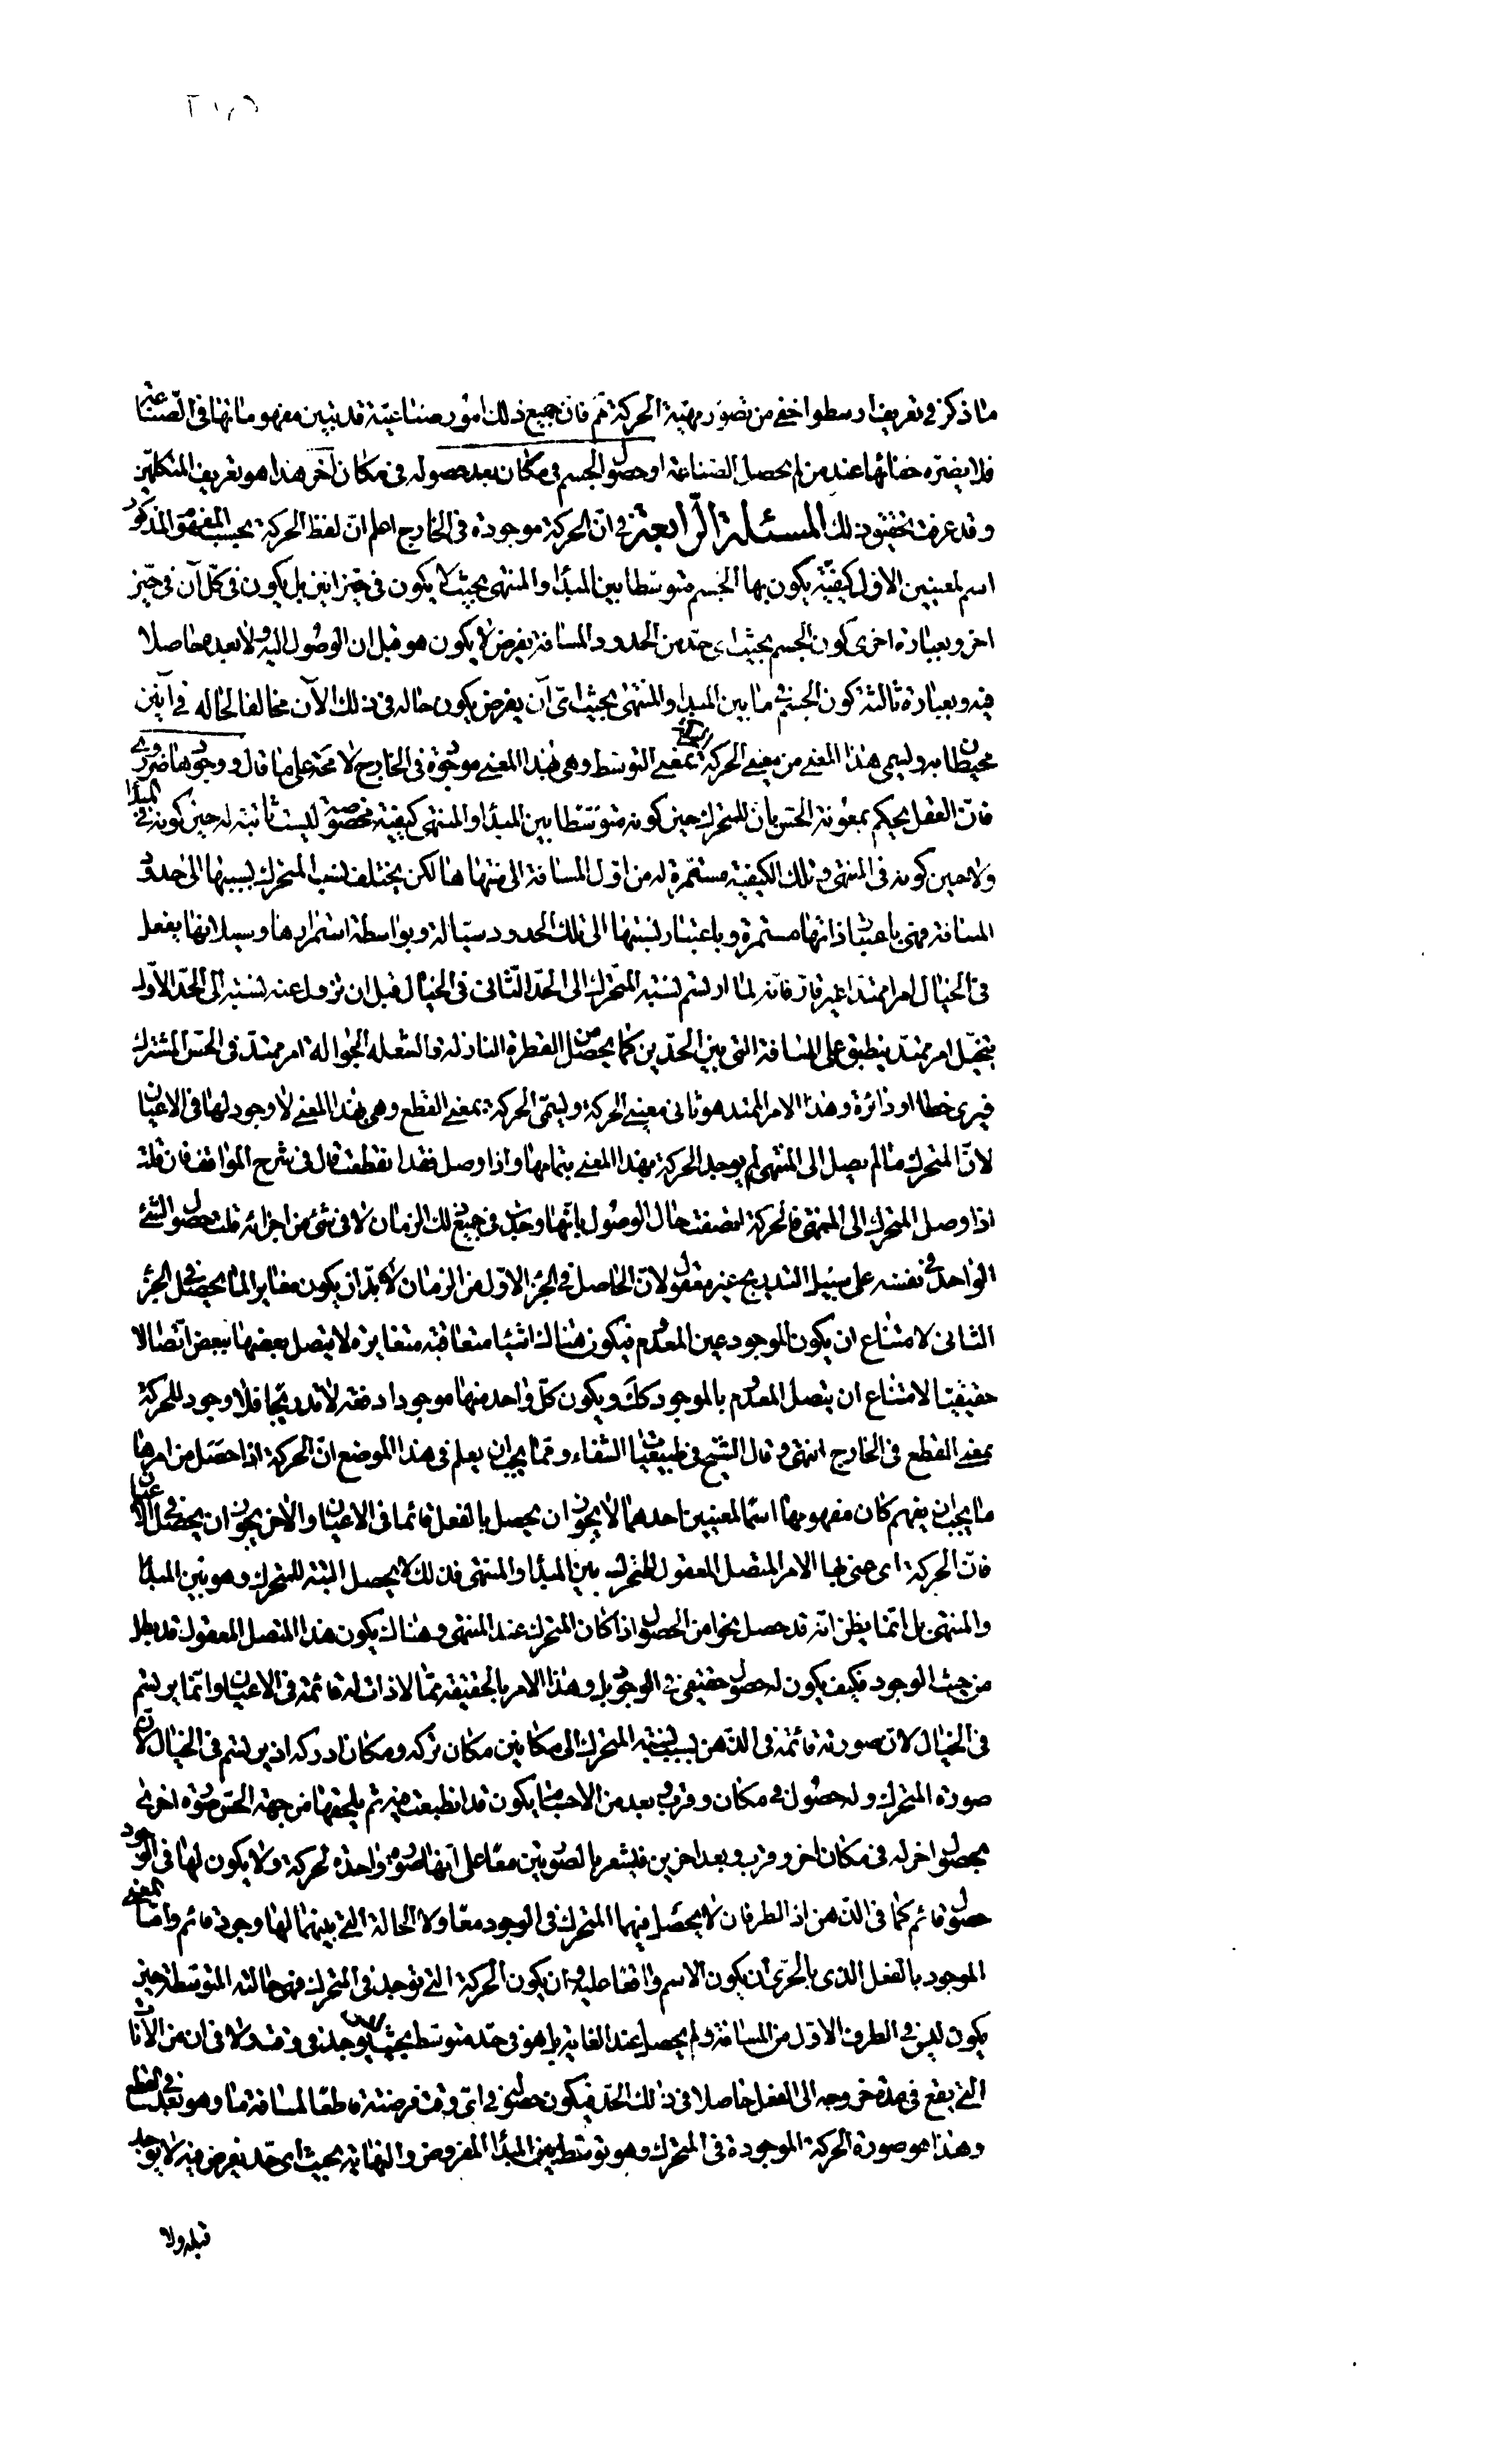 ما ذكر في تعريف ارسطو اخفى من تصور مهية الحركة ثم فان جميع ذلك امور صناعية قد يتبين مفهوماتها في الصناعة
فلا يضره خفائها عند من لم يحصل الصناعة او حصول الجسم في مكان بعد حصوله في مكان آخر هذا هو تعريف المتكلمين
وقد عرفت تحقيق ذلك المسئلة الرابعة في ان الحركة موجودة في الخارج اعلم ان لفظ الحركة بحسب المفهوم المذكور
اسم لمعنيين الاول كيفية يكون بها الجسم متوسطا بين المبدا والمنتهى بحيث لا يكون في حيز انين بل يكون في كل آن في حيز
اخر وبعبارة اخرى كون الجسم بحيث اى حد من الحدود المسافة يفرض لا يكون هو قبل ان الوصول اليه ولا بعده حاصلا
فيه وبعبارة ثالثة كون الجسم في ما بين المبدا والمنتهى بحيث اى آن يفرض يكون حاله في ذلك الآن مخالفا لحاله في آنين
محيطان به وليسمى هذا المعنى من معنيى الحركة بمعنى التوسط وهى بهذا المعنى موجودة في الخارج لا محة على ما قال ووجودها ضرورى
فان العقل يحكم بمعونة الحس بان للمتحرك حين كونه متوسطا بين المبدا والمنتهى كيفية مخصوصة ليست ثابتة له حين كونه في المبدا
ولا حين كونه في المنتهى وتلك الكيفية مستمرة له من اول المسافة الى منتهاها لكن يختلف نسب المتحرك بسببها الى حدود
المسافة فهى باعتبار ذاتها مستمرة وباعتبار نسبتها الى تلك الحدود سيالة وبواسطة استمرارها وسيلانها يفعل
في الخيال امرا ممتدا غير قار فانه لما ارتسم نسبة المتحرك الى الحد الثانى في الخيال قبل ان تزول عنه نسبته الى الحد الاول
يتخيل امر ممتد ينطبق على المسافة التى بين الحدين كما يحصل من القطرة النازلة والشعلة الجوالة امر ممتد في الحس المشترك
فيرى خطا او دائرة وهذا الامر الممتد هو ثانى معنيى الحركة وليسمى الحركة بمعنى القطع وهى بهذا المعنى لا وجود لها في الاعيان
لان المتحرك ما لم يصل الى المنتهى لم يوجد الحركة بهذا المعنى بتمامها واذا وصل فقد انقطعت قال في شرح المواقف فان قلت
اذا وصل المتحرك الى المنتهى فالحركة اتصفت حال الوصول بانها وجدت في جميع ذلك الزمان لا في شئ من اجزائه قلت حصول الشئ
الواحد في نفسه على سبيل التدريج غير معقول لان الحاصل في الجزء الاول من الزمان لا بد ان يكون مغايرا لما يحصل في الجزء
الثانى لامتناع ان يكون الموجود عين المعدوم فيكون هناك اشيا متعاقبة متغايرة لا يتصل بعضها ببعض اتصالا
حقيقيا لامتناع ان يتصل المعدوم بالموجود كك ويكون كل واحد منها موجودا دفعة لا تدريجا فلا وجود للحركة
بمعنى القطع في الخارج انتهى وقال الشيخ في طبيعيات الشفاء ومما يجب ان يعلم في هذا الموضع ان الحركة اذا حصل من امرها
ما يجب ان يفهم كان مفهومها اسما لمعنيين احدهما لا يجوز ان يحصل بالفعل قائما في الاعيان والآخر يجوز ان يحصل في الاعيان
فان الحركة اى عنى بها الامر المتصل المعقول للمتحرك بين المبدا والمنتهى فذلك لا يحصل البتة للمتحرك وهو بين المبدا
والمنتهى بل انما يظن انه قد حصل نحوا من الحصول اذا كان المتحرك عند المنتهى وهناك يكون هذا المتصل المعقول قد بطل
من حيث الوجود فكيف يكون له حصول حقيقى في الوجود بل وهذا الامر بالحقيقة مما لا ذات له قائمة في الاعيان وانما يرتسم
في الخيال لان صورته قائمة في الذهن بسبب نسبة المتحرك الى مكانين مكان تركه ومكان ادركه اذ يرتسم في الخيال لان
صورة المتحرك وله حصول في مكان وقرب وبعد من الاجسام يكون قد انطبعت فيه ثم يلحقها من جهة الحس صورة اخرى
بحصول اخر له في مكان اخر وقرب وبعد اخرين فيشعر بالصورتين معا على انهما صورة واحدة لحركة ولا يكون لها في الوجود
حصول قائم كما في الذهن اذ الطرفان لا يحصل فيهما المتحرك في الوجود معا ولا الحالة التى بينهما لها وجود قائم واما المعنى
الموجود بالفعل الذى بالحرى ان يكون الاسم واقعا عليه وان يكون الحركة التى توجد في المتحرك فهى حالته المتوسطة حين
يكون ليس في الطرف الاول من المسافة ولم يحصل عند الغاية بل هو في حد متوسط بحيث ليس يوجد في وقت ولا في ان من الآنات
التى يقع في مدة خروجه الى الفعل حاصلا في ذلك الحد فيكون حصوله في اى وقت فرضته قاطعا لمسافة ما وهو بعد في القطع
وهذا هو صورة الحركة الموجودة في المتحرك وهو توسط بين المبدا المفروض والنهاية بحيث اى حد يفرض فيه لا يوجد
قبله ولا